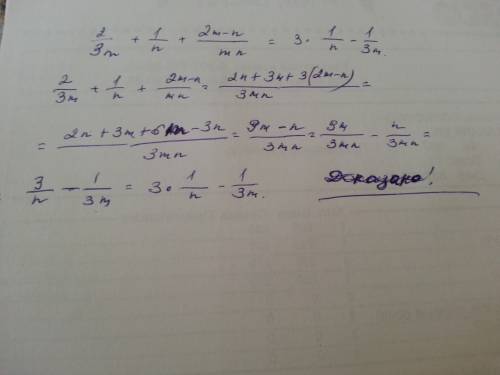 2/3m + 1/n + (2m-n)/mn = 3 · 1/n - 1/3m.
2/3m + 1/n + (2m-n)/mn = (2n + 3m + 3(2m-n))/3mn =
= (2n + 3m + 6m - 3n)/3mn = (9m - n)/3mn = 9m/3mn - n/3mn =
3/n - 1/3m = 3 · 1/n - 1/3m. Доказано!